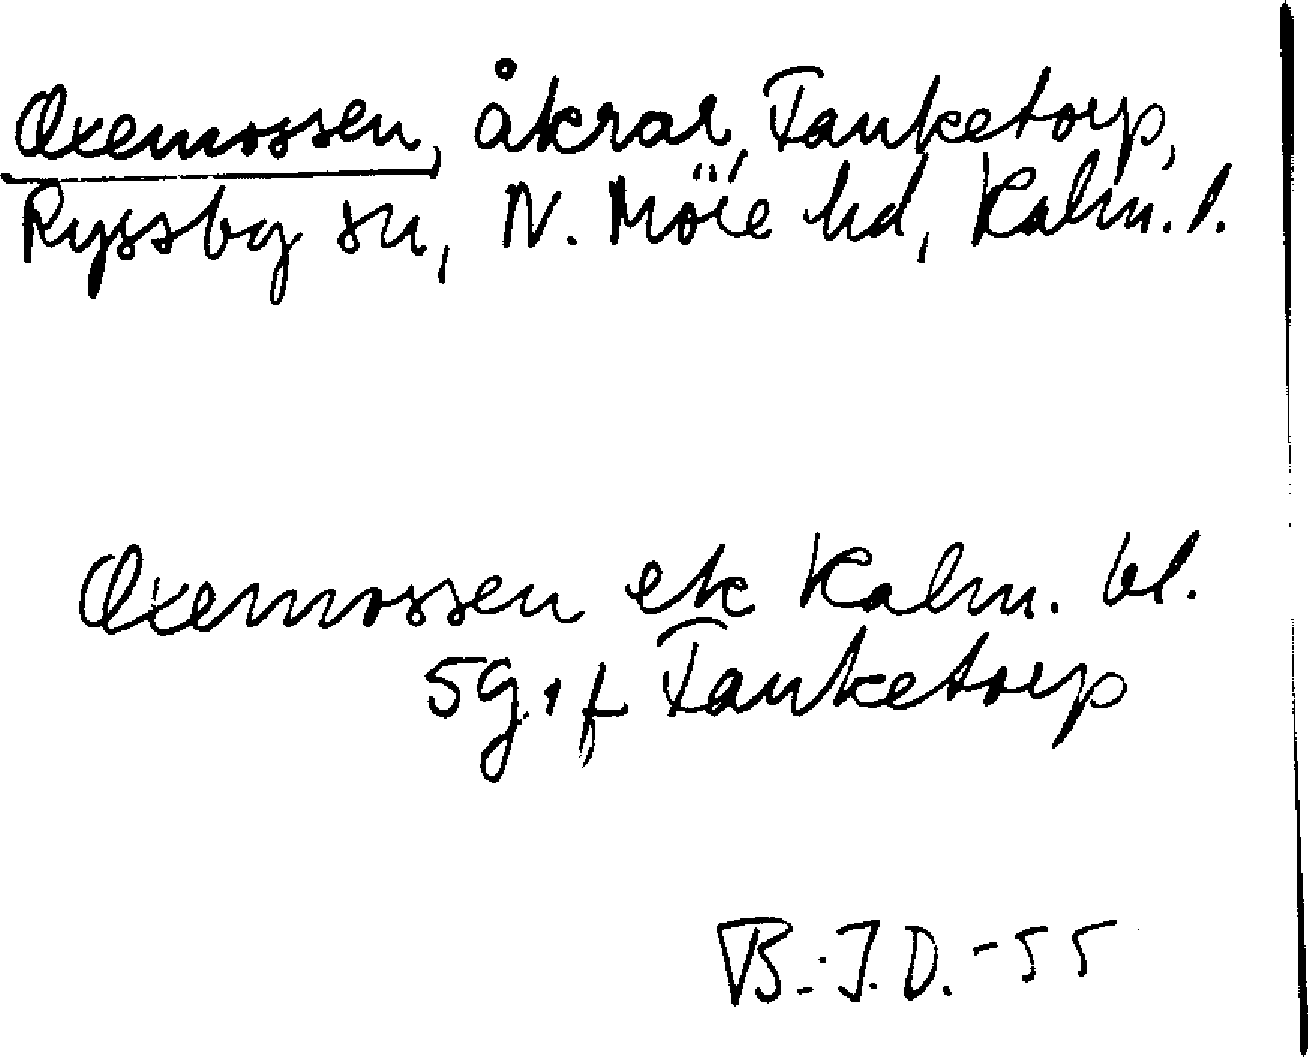 Oxemossen, åkrar, Tanketorp,
Ryssby sn, N. Möre hd, Kalm. l.
Oxemossen ek Kalm. bl.
5g, f Tanketorp
B.-J.D.-55